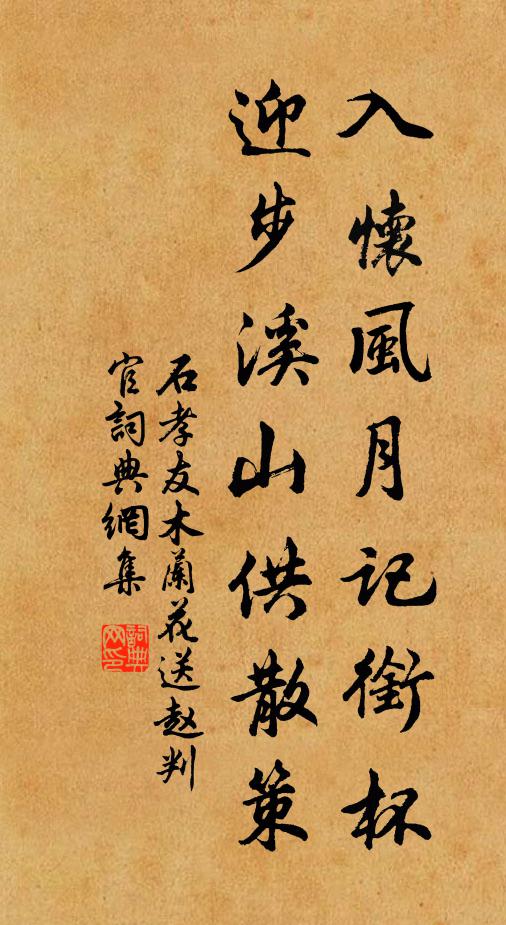 入懷風月記銜杯
迎步溪山供散策
石孝友木蘭花送赵判
官詞典網集
詞典
网印